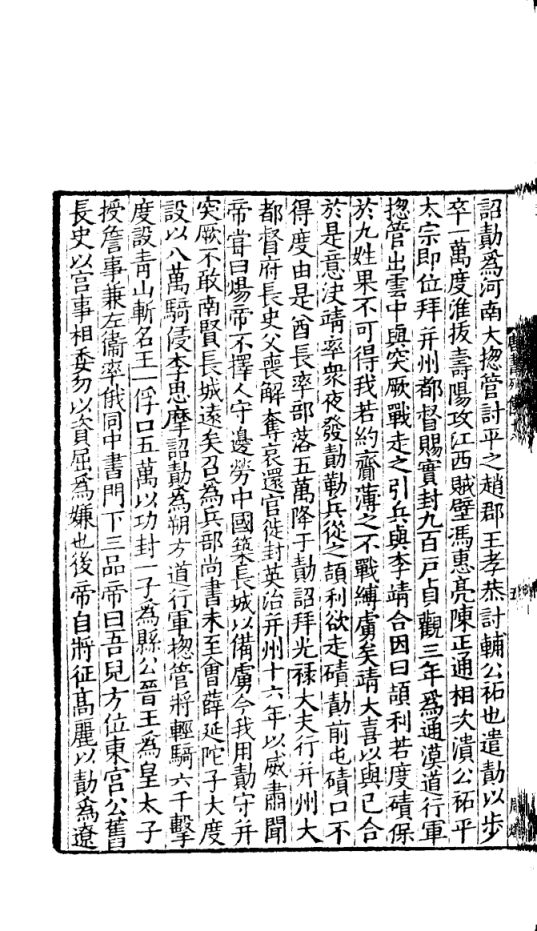 詔勣爲河南大揔管討平之趙郡王孝恭討輔公祏也遣勣以步
卒一萬度淮拔壽陽攻江西賊壁馮惠亮陳正通相次潰公祏平
太宗即位拜并州都督賜實封九百戶貞觀三年爲通漠道行軍
揔管出雲中與突厥戰走之引兵與李靖合因曰頡利若度磧保
於九姓果不可得我若約齎薄之不戰縛虜矣靖大喜以與已合
於是意決靖率衆夜發勣勒兵從之頡利欲走磧勣前屯磧口不
得度由是酋長率部落五萬降于勣詔拜光祿大夫行并州大
都督府長史父喪解奪哀還官徙封英治并州十六年以威肅聞
帝甞曰煬帝不擇人守邊勞中國築長城以備虜今我用勣守并
突厥不敢南賢長城遠矣召爲兵部尚書未至會薛延陀子大度
設以八萬騎侵李思摩詔勣爲朔方道行軍揔管將輕騎六千擊
度設靑山斬名王一俘口五萬以功封一子爲縣公晉王爲皇太子
授詹事兼左衞率俄同中書門下三品帝曰吾兒方位東宮公舊
長史以宮事相委勿以資屈爲嫌也後帝自將征高麗以勣爲遼